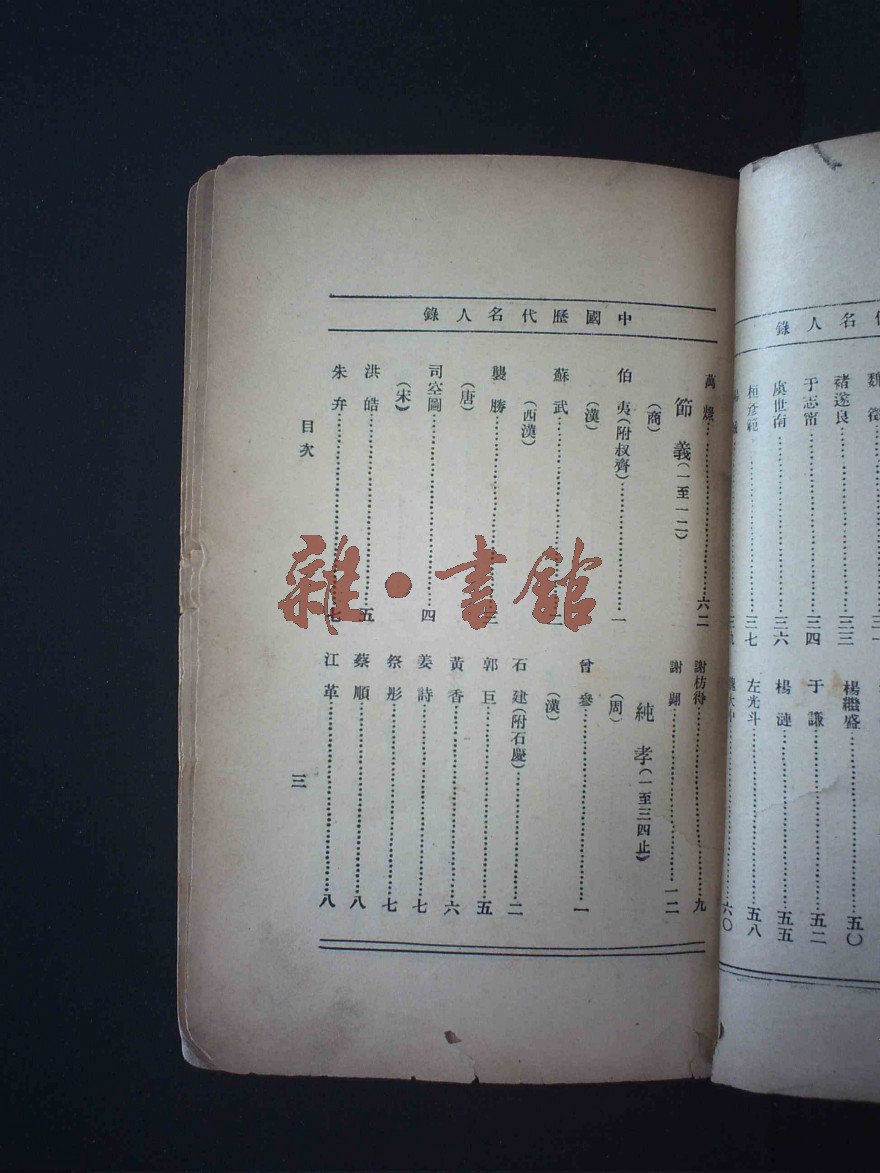 中國歷代名人錄
節義(一至一二)
(商)
伯夷(附叔齊)……一
(漢)
蘇武……二
(西漢)
龔勝……三
(唐)
司空圖……四
(宋)
洪皓……五
朱弁……七
謝枋得……九
謝翺……一二
純孝(一至三四止)
(周)
曾參……一
(漢)
石建(附石慶)……二
郭巨……五
黃香……六
姜詩……七
祭彤……七
蔡順……八
江革……八
目次
三
名人錄
褚遂良……三三
于志甯……三四
虞世南……三六
桓彥範……三七
楊繼盛……五〇
于謙……五二
楊漣……五五
左光斗……五八
六〇
雜·書館